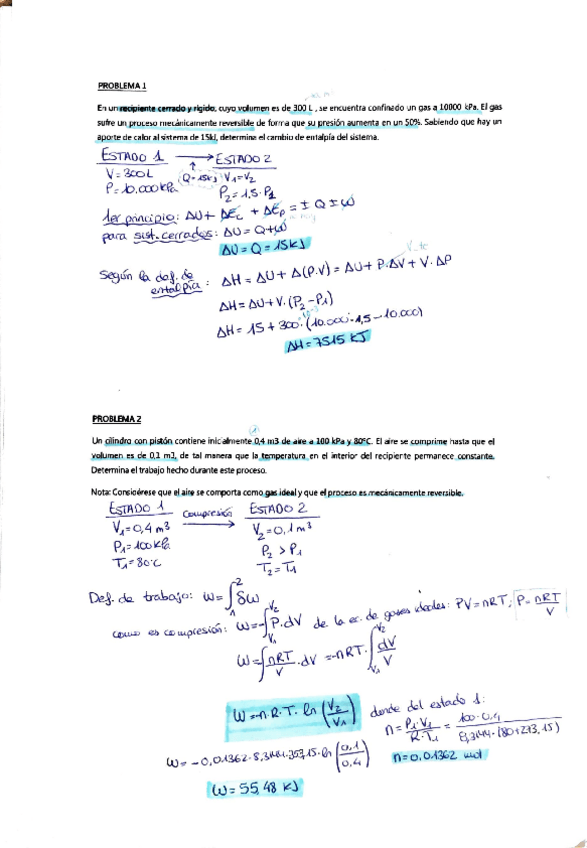 PROBLEMA 1
En un recipiente cerrado y rígido, cuyo volumen es de 300 L , se encuentra confinado un gas a 10000 kPa. El gas
sufre un proceso mecánicamente reversible de forma que su presión aumenta en un 50%. Sabiendo que hay un
aporte de calor al sistema de 15kJ, determina el cambio de entalpía del sistema.
ESTADO 1 → ESTADO 2
V=300L Q=15kJ V1=V2
P=10.000kPa P2=1,5·P1
1er principio: ΔU+ ΔEc + ΔEp = ± Q ± W
para sist. cerrados: ΔU = Q+W
ΔU = Q = 15 kJ
Según la def. de entalpía : ΔH = ΔU + Δ(P.V) = ΔU + P.ΔV + V. ΔP
ΔH = ΔU+V. (P2 - P1)
ΔH = 15 + 300· (10.000·1,5 - 10.000)
ΔH = 1515 kJ
PROBLEMA 2
Un cilindro con pistón contiene inicialmente 0,4 m3 de aire a 100 kPa y 80ºC. El aire se comprime hasta que el
volumen es de 0,1 m3, de tal manera que la temperatura en el interior del recipiente permanece constante.
Determina el trabajo hecho durante este proceso.
Nota: Considérese que el aire se comporta como gas ideal y que el proceso es mecánicamente reversible.
ESTADO 1 compresión ESTADO 2
V1=0,4 m³ → V2=0,1 m³
P1=100kPa P2 > P1
T1=80ºC T2=T1
Def. de trabajo: W=∫₁² δW
como es compresión: W=-∫ P.dV de la ec. de gases ideales: PV=nRT; P=nRT/V
W=∫ nRT/V . dV = -nRT. ∫ dV/V
W=-n.R.T. ln (V2/V1) donde del estado 1:
n = P1·V1/R·T1 = 100·0,4/8,3144·(80+273,15)
W=-0,01362·8,3144·353,15·ln(0,1/0,4) n=0,01362 mol
W= 55,48 kJ